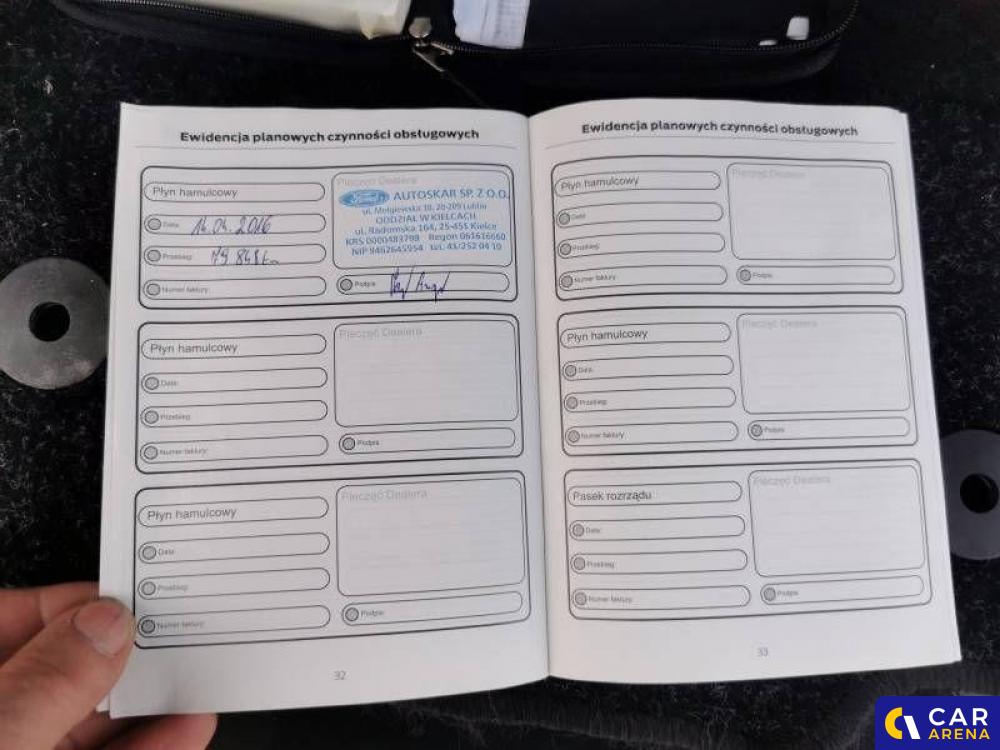 Ewidencja planowych czynności obsługowych
Płyn hamulcowy
Data: 14.04.2016
Przebieg:
Numer faktury:
Pieczęć Dealera
Ford AUTOSKAR SP. Z O.O.
ul. Mełgiewska 10, 20-209 Lublin
ODDZIAŁ W KIELCACH
ul. Radomska 164, 25-451 Kielce
KRS 0000483798 Regon 061616660
NIP 9462645954 tel. 41/252 04 10
Podpis
Płyn hamulcowy
Data:
Przebieg:
Numer faktury:
Pieczęć Dealera
Podpis
Płyn hamulcowy
Data:
Przebieg:
Numer faktury:
Pieczęć Dealera
Podpis:
32
Ewidencja planowych czynności obsługowych
Płyn hamulcowy
Data:
Przebieg:
Numer faktury:
Pieczęć Dealera
Podpis:
Płyn hamulcowy
Data:
Przebieg:
Numer faktury:
Pieczęć Dealera
Podpis:
Pasek rozrządu
Data:
Przebieg:
Numer faktury:
Pieczęć Dealera
Podpis:
33
CAR
ARENA